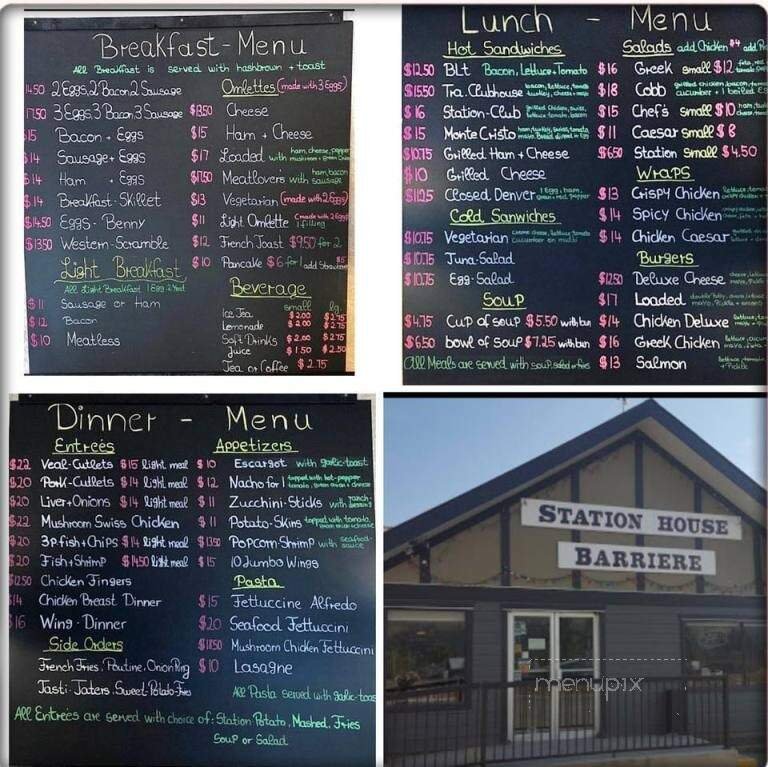 Breakfast - Menu
All Breakfast is served with hashbrown + toast
14.50 2 Eggs, 2 Bacon 2 Sausage
17.50 3 Eggs, 3 Bacon 3 Sausage
$15 Bacon + Eggs
$14 Sausage + Eggs
$14 Ham + Eggs
$14 Breakfast-Skillet
$14.50 Eggs-Benny
$13.50 Western-Scramble
Light Breakfast
All Light Breakfast 1 Egg
$11 Sausage or Ham
$12 Bacon
$10 Meatless
Omlettes (made with 3 Eggs)
$13.50 Cheese
$15 Ham + Cheese
$17 Loaded with ham, cheese, pepper mushroom +
$17.50 Meatlovers with ham, bacon sausage
$13 Vegetarian (made with 2 Eggs)
$11 Light Omlette (made with 2 Eggs) 1 filling
$12 French Toast $9.50 for 2
$10 Pancake $6 for 1 add
Beverage
small lg.
Ice Tea $2.00 $2.75
Lemonade $2.00 $2.75
Soft Drinks $2.00 $2.75
Juice $1.50 $2.50
Tea or Coffee $2.75
Lunch - Menu
Hot Sandwiches
$12.50 BLT Bacon, Lettuce + Tomato
$15.50 Tra. Clubhouse bacon, lettuce, tomato turkey, cheese
$16 Station-Club
$15 Monte Cristo ham, turkey, swiss, tomato
$10.75 Grilled Ham + Cheese
$10 Grilled Cheese
$11.25 Closed Denver 1 Egg, ham,
Cold Sanwiches
$10.75 Vegetarian
$10.75 Tuna-Salad
$10.75 Egg-Salad
Soup
$4.75 Cup of soup $5.50 with bun
$6.50 bowl of soup $7.25 with bun
All Meals are served with soup, salad or fries
Salads add Chicken $4
$16 Greek small $12
$18 Cobb
$15 Chef's small $10
$11 Caesar small $8
$6.50 Station small $4.50
Wraps
$13 Crispy Chicken
$14 Spicy Chicken
$14 Chicken Caesar
Burgers
$12.50 Deluxe Cheese
$17 Loaded
$14 Chicken Deluxe
$16 Greek Chicken
$13 Salmon
Dinner - Menu
Entreés
$22 Veal-Cutlets $15 light meal
$20 Pork-Cutlets $14 light meal
$20 Liver + Onions $14 light meal
$22 Mushroom Swiss Chicken
$20 3 P. fish + Chips $14 light meal
$20 Fish + Shrimp $14.50 light meal
12.50 Chicken Fingers
$14 Chicken Breast Dinner
$16 Wing-Dinner
Side Orders
French Fries, Poutine, Onion Ring
Tasti-Taters, Sweet-Potato-Fries
Appetizers
$10 Escargot with garlic-toast
$12 Nacho for 1 topped with hot-pepper tomato, green onion + cheese
$11 Zucchini-Sticks with ranch-dressing
$11 Potato-Skins topped with tomato,
$13.50 Popcorn-Shrimp with seafood-sauce
$15 10 Jumbo Wings
Pasta
$15 Fettuccine Alfredo
$20 Seafood Fettuccini
$18.50 Mushroom Chicken Fettuccini
$10 Lasagne
All Pasta served with garlic-toas
All Entreés are served with choice of: Station Potato, Mashed, Fries
Soup or Salad
STATION HOUSE
BARRIERE
menupix